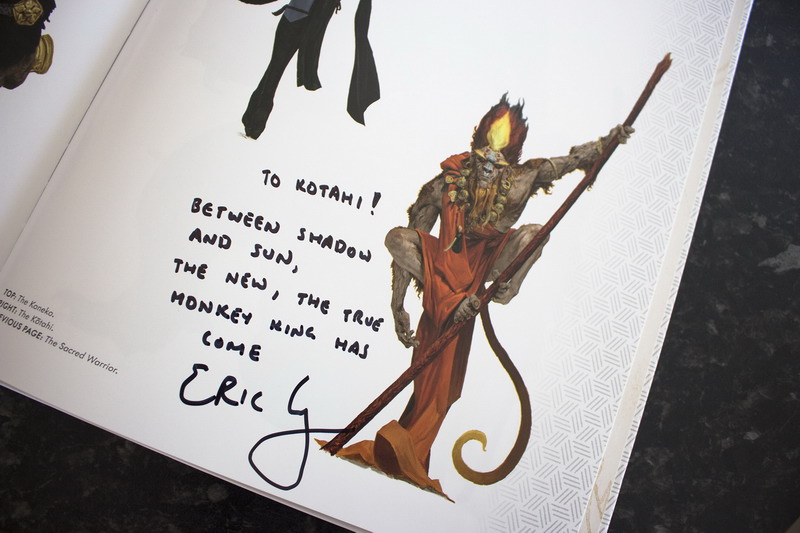 TO KOTAHI!
BETWEEN SHADOW
AND SUN,
THE NEW, THE TRUE
MONKEY KING HAS
COME
ERIC G
TOP: The Koneko.
RIGHT: The Kōtahi.
EVIOUS PAGE: The Sacred Warrior.